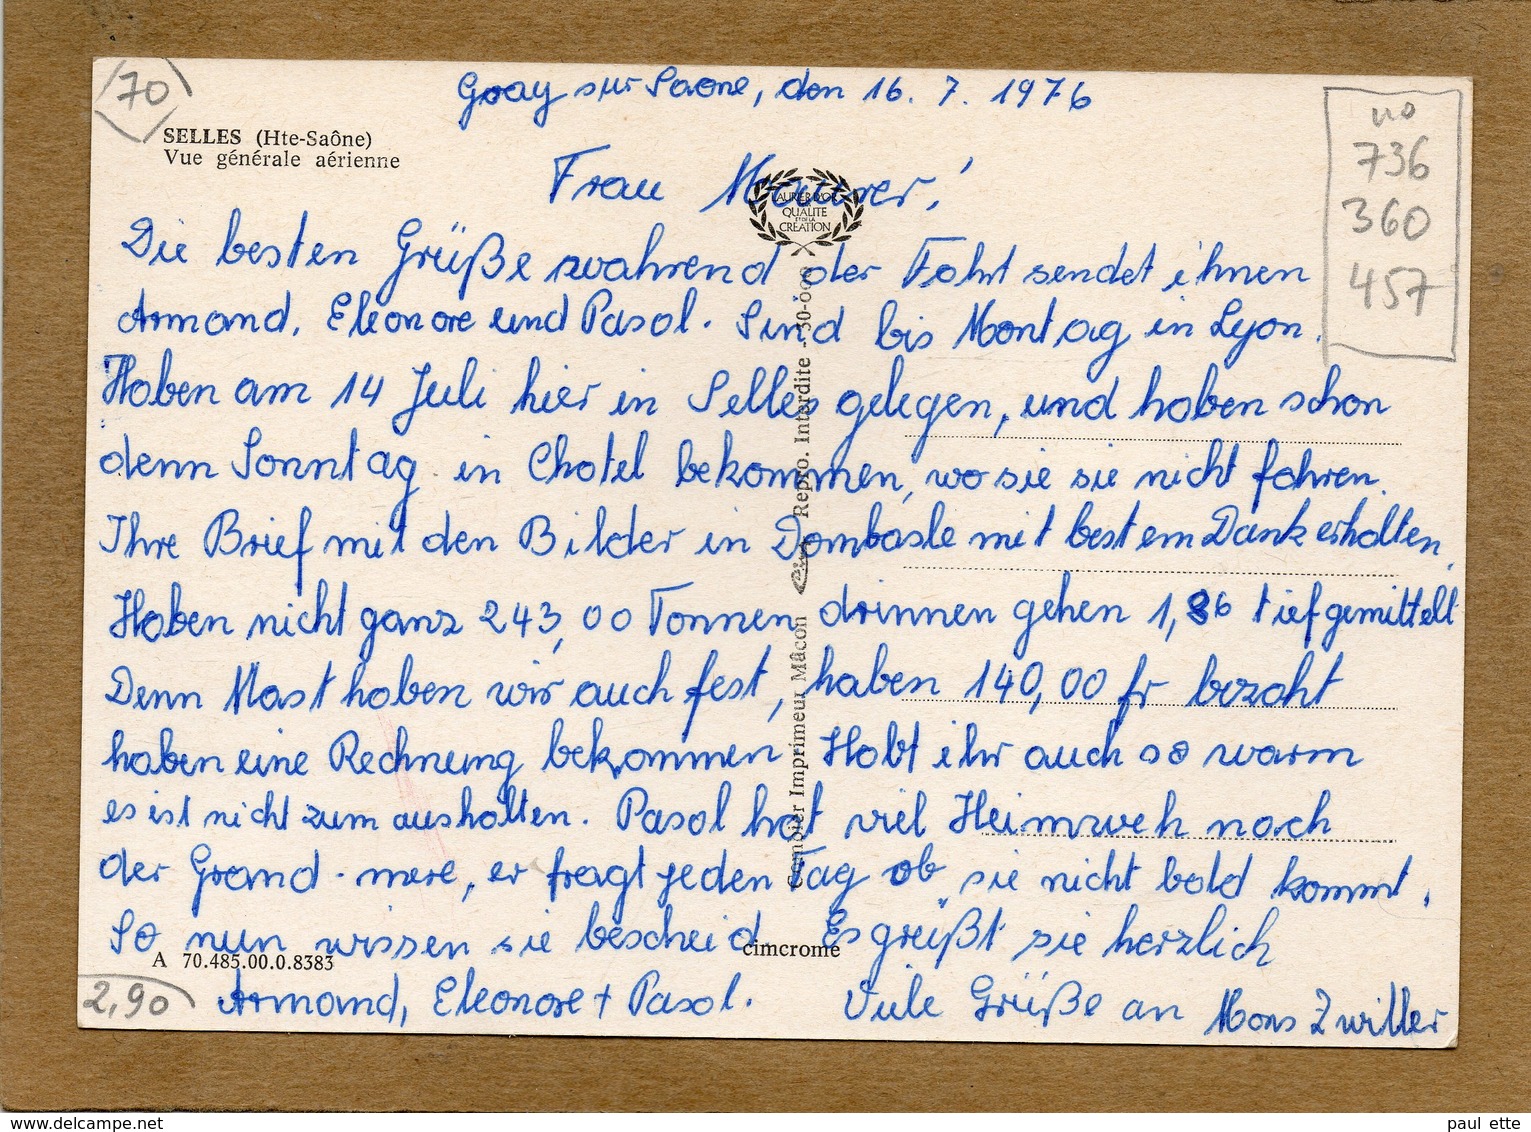 70
Gray sur Saone, den 16. 7. 1976
SELLES (Hte-Saône)
Vue générale aérienne
no
736
360
457
LAURIER D'OR
QUALITE
ET DE LA
CREATION
Frau Maurer!
Die besten Grüße wahrend der Fahrt sendet ihnen
Armand, Eleonore und Pasal. Sind bis Montag in Lyon.
Haben am 14 Juli hier in Selles gelegen, und haben schon
denn Sonntag in Chatel bekommen, wo sie sie nicht fahren.
Ihre Brief mit den Bilder in Dombasle mit bestem Dank erhalten.
Haben nicht ganz 243,00 Tonnen drinnen gehen 1,86 tief gemittelt
Denn Mast haben wir auch fest, haben 140,00 fr bezaht
haben eine Rechnung bekommen. Habt ihr auch so warm
es ist nicht zum aushalten. Pasal hat viel Heimweh nach
der Grand-mere, er fragt jeden Tag ob sie nicht bald kommt.
So nun wissen sie bescheid. Es grüßt sie herzlich
Armand, Eleonore + Pasal. Viele Grüße an Mons Zwiller
A 70.485.00.0.8383
cimcrome
2,90
Combier Imprimeur Mâcon Cim Repro. Interdite - 30-000
paul ette
www.delcampe.net